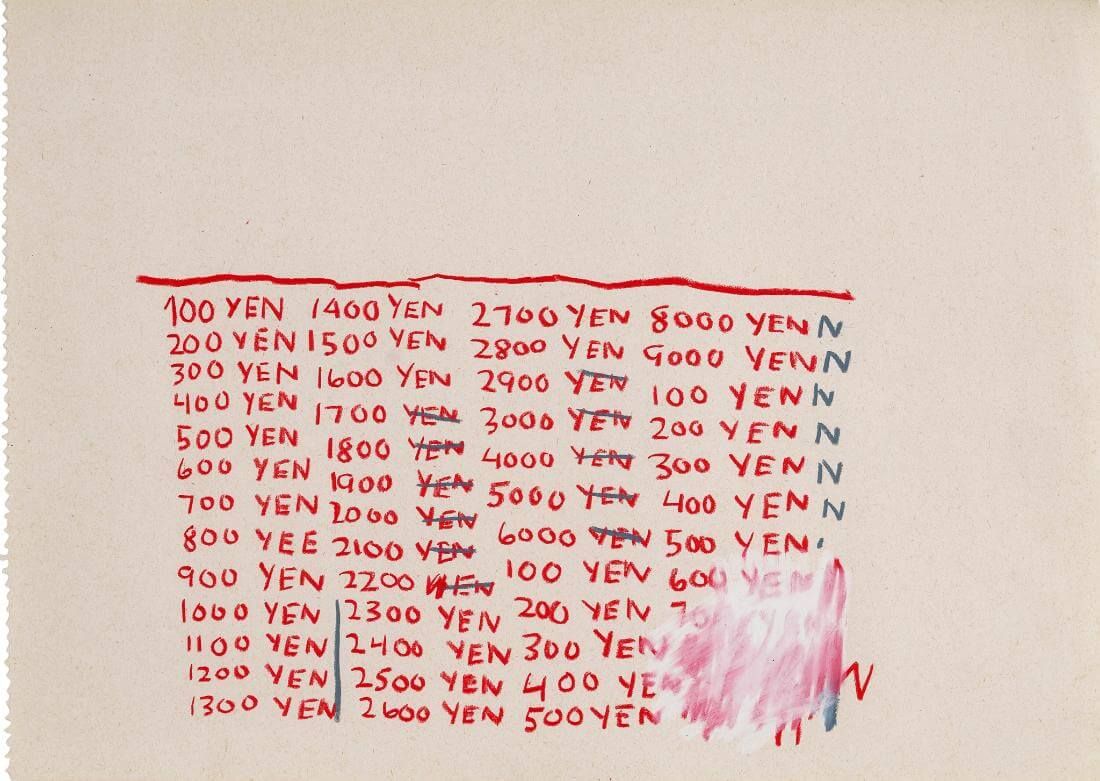 100 YEN
200 YEN
300 YEN
400 YEN
500 YEN
600 YEN
700 YEN
800 YEE
900 YEN
1000 YEN
1100 YEN
1200 YEN
1300 YEN
1400 YEN
1500 YEN
1600 YEN
1700 YEN
1800 YEN
1900 YEN
2000 YEN
2100 YEN
2200 YEN
2300 YEN
2400 YEN
2500 YEN
2600 YEN
2700 YEN
2800 YEN
2900 YEN
3000 YEN
4000 YEN
5000 YEN
6000 YEN
100 YEN
200 YEN
300 YEN
400 YEN
500 YEN
8000 YEN N
9000 YEN N
100 YEN N
200 YEN N
300 YEN N
400 YEN N
500 YEN
600 YEN
N